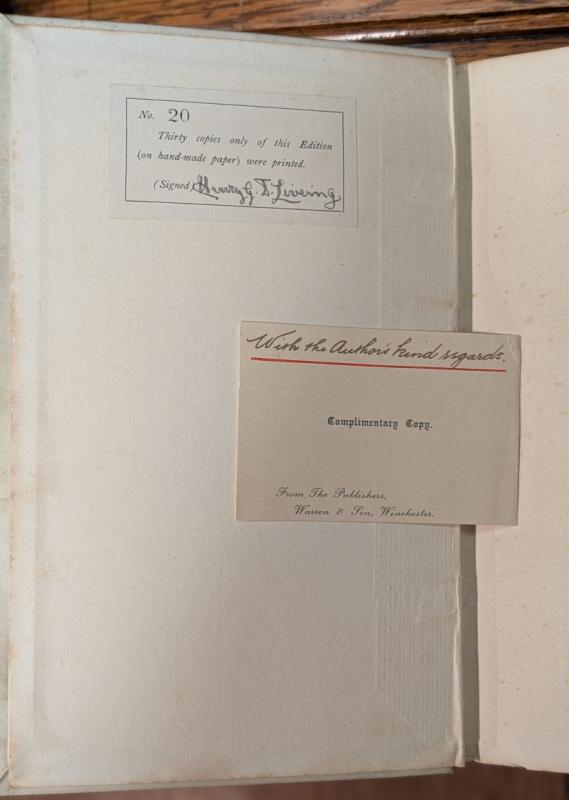 No. 20
Thirty copies only of this Edition
(on hand-made paper) were printed.
(Signed) Henry G. D. Liveing
With the Author's kind regards.
Complimentary Copy.
From The Publishers,
Warren & Son, Winchester.